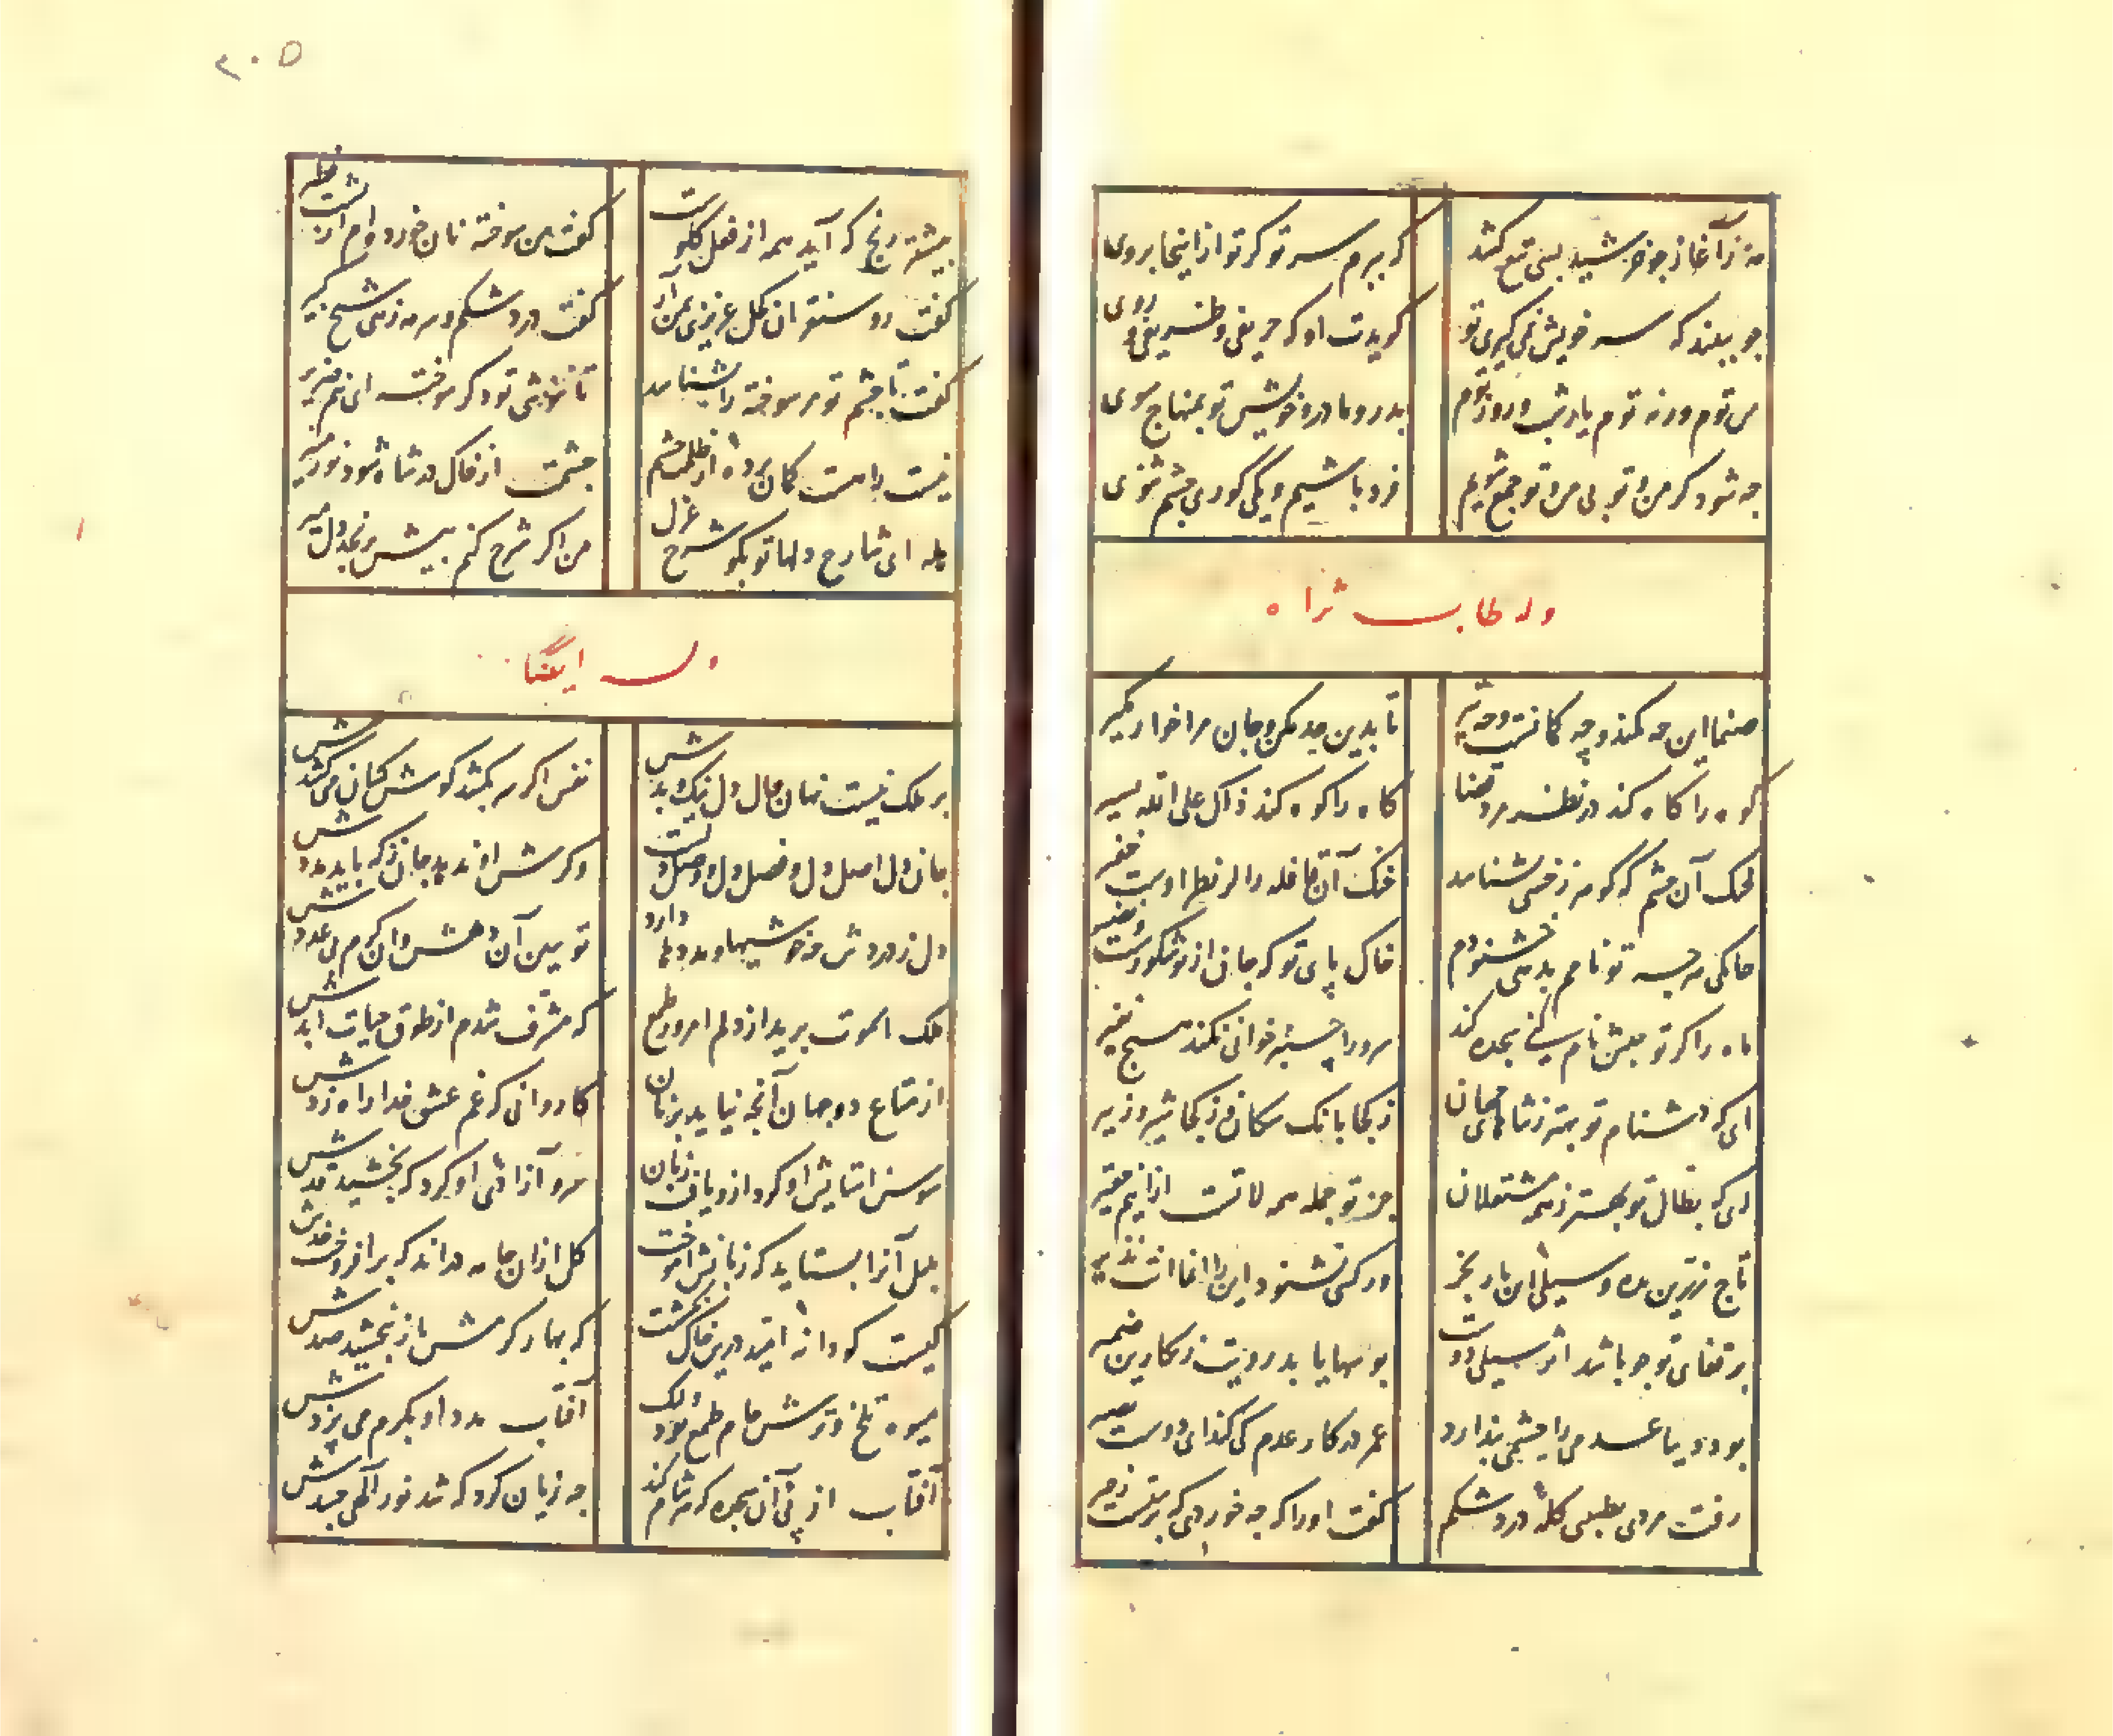 مه ز آغاز چو خورشید بسی تیغ کشد
که ببرم سر تو گر تو از اینجا بروی
چو ببیند که سر خویش نمی گیری تو
گویدت او که حریفی و ظریفی و روی
من توم ورنه توم یار شب و روز توم
پدر و مادر و خویش تو بمنهاج سوی
چه شود گر من و تو بی من و تو جمع شویم
فرد باشیم و یکی کوری چشم ثنوی
وله طاب ثراه
صنما این چه کمند و چه کمانست و چه تیر
تا بدین حد مکن و جان مرا خوار مگیر
کوه را کاه کند در نظر مرد قضا
کاه را کوه کند ذاک علی الله یسیر
خنک آن چشم که گوهر ز خسی بشناسد
خنک آن قافله را که نظر اوست خفیر
حاکمی هر چه تو نامم بدهی خشنودم
خاک پای تو که جان از تو شکورست و ضمیر
ماه را گر تو حبش نام نهی سجده کند
سرو را چنبر خوانی نکند هیچ نفیر
ای که دشنام تو بهتر ز ثناهای جهان
ز کجا بانگ سگان و ز کجا شیر و زئیر
ای که بطال تو بهتر ز همه مشتغلان
جز تو جمله همه لاتست از آنیم فقیر
تاج زرین بده و سیلی آن یار بخر
ور کسی نشنود این را انما انت نذیر
بر قفای تو چو باشد اثر سیلی دوست
بوسها یابد رویت ز نگارین ضمیر
بود دنیا عدمی را چشمی پندارد
عمر در کار عدم کی کند ای دوست بصیر
رفت مردی بطبیبی گله درد شکم
گفت او را که چه خوردی که برستست زحیر
۲۰۵
بیشتر رنج که آید همه از فعل گلوست
گفت من سوخته نان خورده‌ام از پست فطیر
گفت رو سنقر آن کحل عزیزی بمن آر
گفت درد شکم و سرمه زهی شیخ کبیر
گفت تا چشم تو مر سوخته را بشناسد
تا ننوشی تو دگر سوخته ای نیم ضریر
نیست را هست گمان برده از ظلمت چشم
چشمت از خاک در شاه شود نور منیر
هله ای شارح دلها تو بگو شرح غزل
من اگر شرح کنم نیش برنجد دل میر
وله ایضا
بر ملک نیست نهان حال دل نیک و بدش
نفس اگر سر بکشد گوش کشان می کشدش
جان دل اصل دل و فصل دل و وصل دلست
وگرش او ندهد جان ز که باید مددش
دل ز دردش چه خوشیها و مددها دارد
تو ببین آن دهش و آن کرم بی عددش
ملک الموت برید از دلم امروز طمع
که مشرف شدم از طوق حیات ابدش
از متاع دو جهان آنچه نیاید بزیان
کاروانی که غم عشق خدا راه زدش
سوسن استایش او کرد از و یافت زبان
سرو آزادی او کرد که بخشید قدش
بلبل آنرا بستاید که زبانش آموخت
گل از آن جامه دراند که برافروخت خدش
کیست کو دانه امید درین خاک بکشت
که بهار کرمش باز نبخشید صدش
میوه تلخ و ترش خام طمع بود ولیک
آفتاب مدد او بکرم می پزدش
آفتاب از پی آن سجده که هر شام کند
چه زیان کرد که شد نور الهی جسدش